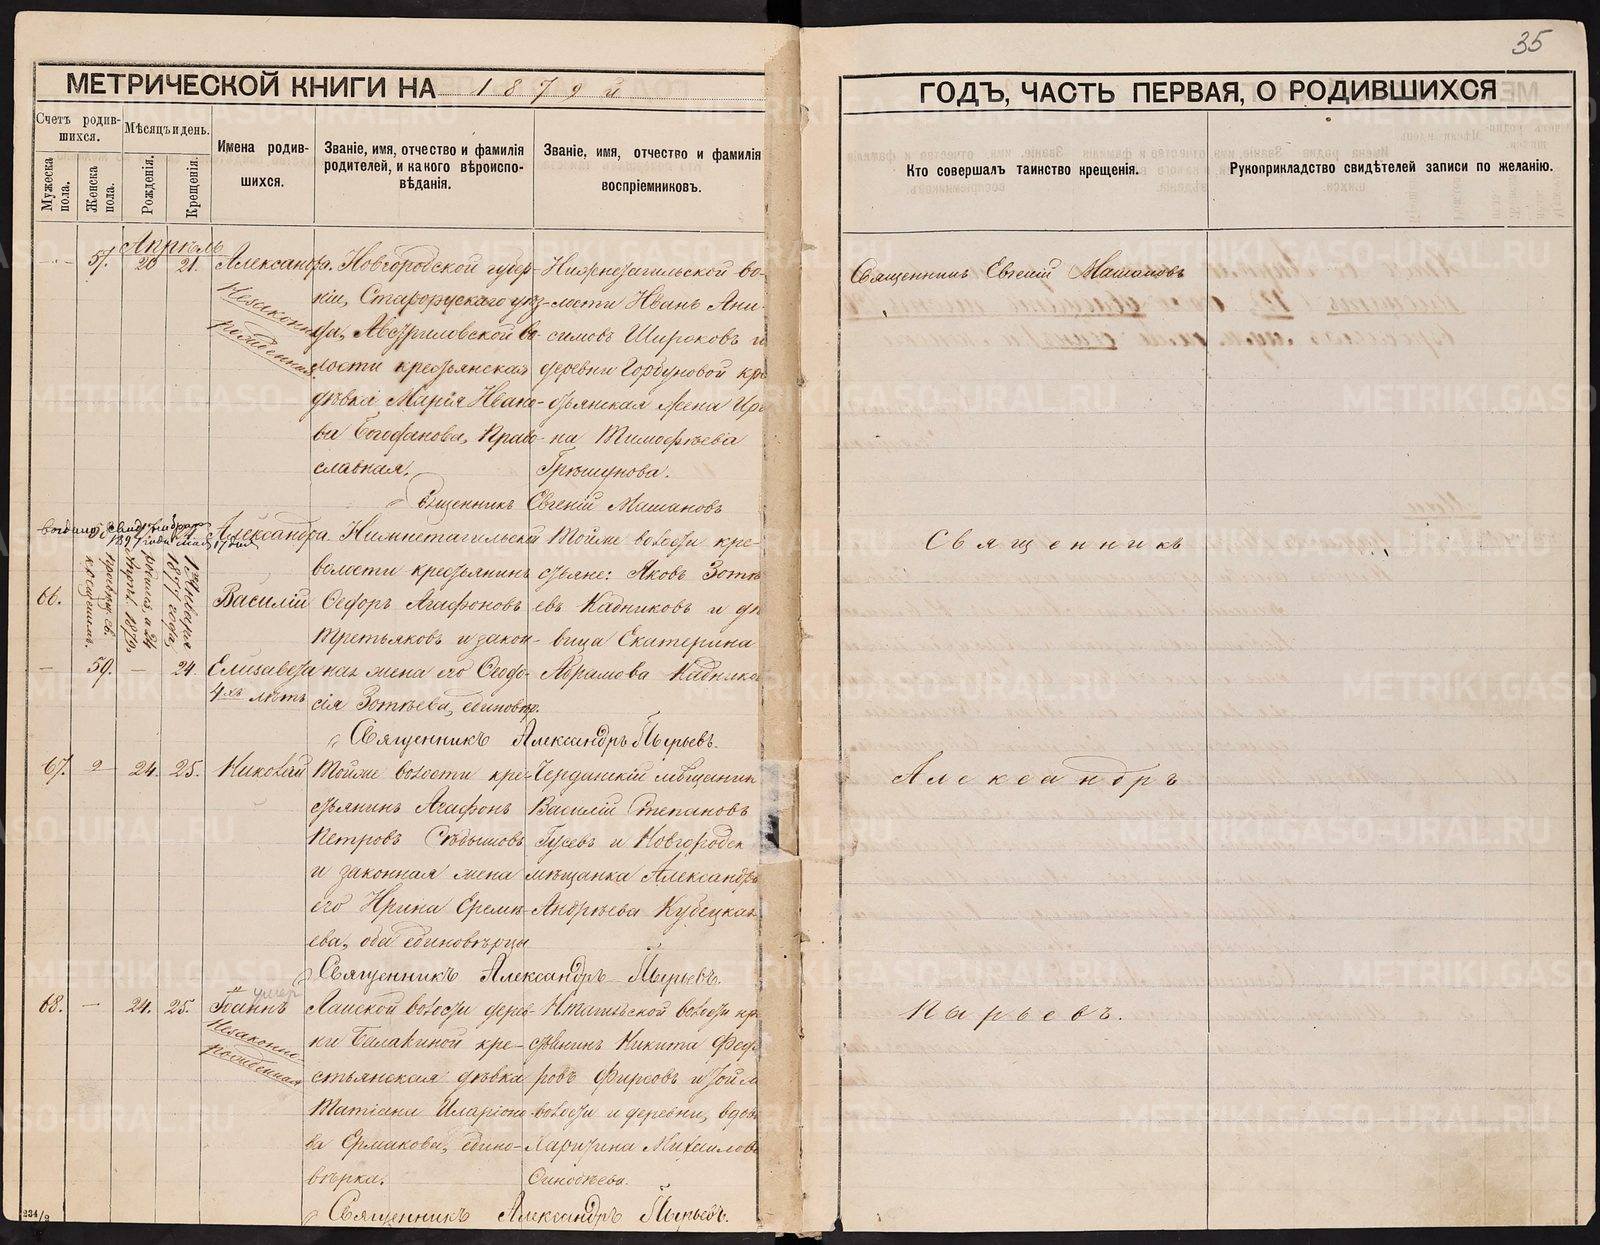 35
МЕТРИЧЕСКОЙ КНИГИ НА 1879 й
ГОДЪ, ЧАСТЬ ПЕРВАЯ, О РОДИВШИХСЯ
Счетъ родив-
шихся.
Мѣсяцъ и день.
Мужеска пола.
Женска пола.
Рожденія.
Крещенія.
Имена родив-
шихся.
Званіе, имя, отчество и фамилія
родителей, и какого вѣроиспо-
вѣданія.
Званіе, имя, отчество и фамилія
воспріемниковъ.
Кто совершалъ таинство крещенія.
Рукоприкладство свидѣтелей записи по желанію.
Апрѣль
57. 20 21. Александра.
Незаконно
рожденная
Новгородской губер-
ніи, Старорускаго уѣз-
да,
волости крестьянская
дѣвка Марія Ивано-
ва Богданова, Право-
славная.
Нижнетагильской во-
лости Иванъ Ани-
симовъ Широковъ и
деревни Горбуновой кре
стьянская жена Ири
на Тимофѣева
Грѣшунова.
Священникъ Евгеній Машановъ
Священникъ Евгеній Машановъ
Александра
Нижнетагильской
волости крестьянинъ
Ѳедоръ Агафоновъ
Третьяковъ и закон-
ная жена его Ѳеодо-
сія Зотѣева, единовѣр.
Тойже волости кре-
стьяне: Яковъ Зотѣ
евъ Кадниковъ и дѣ
вица Екатерина
Абрамова Кадникова
66.
родился, а 24 Апрѣл. 1879.
13 Января 1877 года
Василій
59. — 24. Елизавета
4хъ лѣтъ
Священникъ Александръ Пырьевъ.
67. 24. 25. Николай
Тойже волости кре-
стьянинъ Агафонъ
Петровъ Сѣдышовъ
и законная жена
его Ирина Еремѣ-
ева, оба единовѣрцы
Чердынскій мѣщанинъ
Василій Степановъ
Гусевъ и Новгородск
мѣщанка Александра
Андрѣева Кубецкая
Священникъ Александръ Пырьевъ.
68. — 24. 25. Іоаннъ
умер
Незаконно-
рожденная
Лайской волости дерев-
ни Балакиной кре-
стьянская дѣвка
Татіана Иларіоно-
ва Ермакова, едино-
вѣрка.
волости кре
стьянинъ Никита Ѳедо
ровъ Фирсовъ и той же
волости и деревни, вдова
Харитина Михаилова
Синобѣева.
Священникъ Александръ Пырьевъ.
Священникъ
Александръ
Пырьевъ.
234/2
METRIKI.GASO-URAL.RU